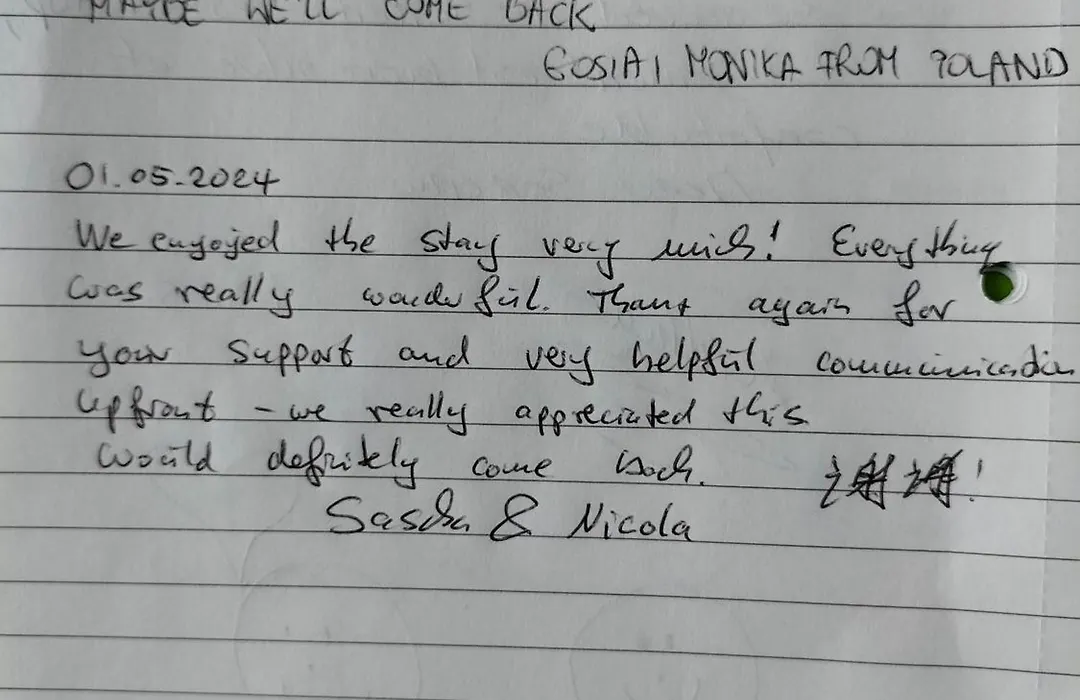 MAYBE WE'LL COME BACK
GOSIA I MONIKA FROM POLAND
01.05.2024
We enjoyed the stay very much! Everything
was really wonderful. Thanks again for
your support and very helpful communication
upfront - we really appreciated this
would definitely come back. 谢谢!
Sascha & Nicola